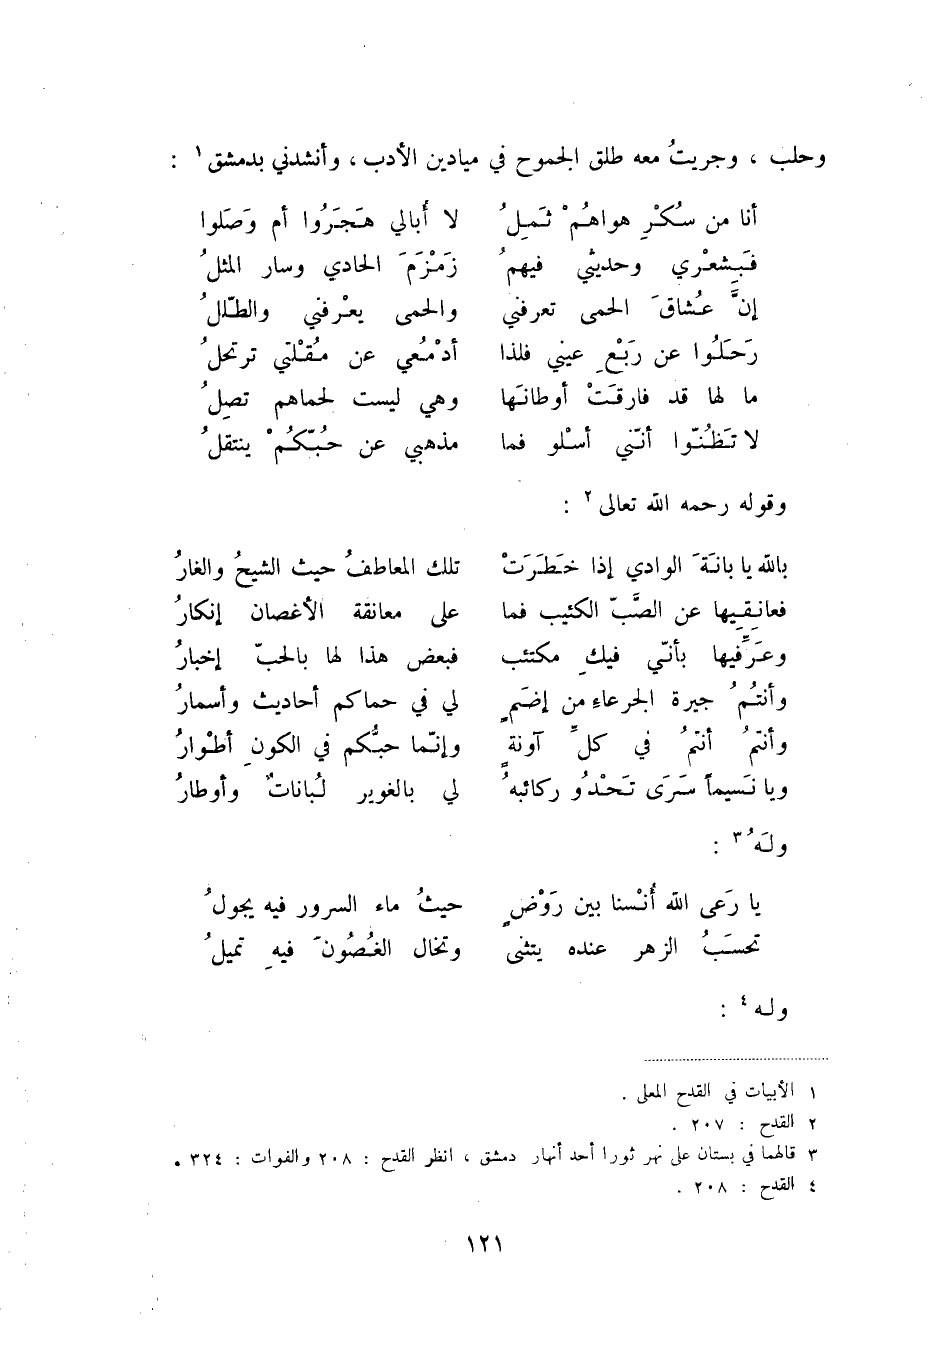 وحلب ، وجريتُ معه طلق الجموح في ميادين الأدب ، وأنشدني بدمشق ١ :
أنا من سُكْرِ هواهُمْ ثَمِلُ لا أُبالي هَجَرُوا أم وَصَلوا
فَبِشعْري وحديثي فيهمُ زَمْزَمَ الحادي وسار المثلُ
إنَّ عُشاقَ الحمى تعرفني والحمى يعْرفني والطّلَلُ
رَحَلُوا عن رَبْعِ عيني فلذا أدْمُعي عن مُقْلتي ترتحلُ
ما لها قد فارقَتْ أوطانَها وهي ليست لحماهم تصِلُ
لا تَظُنّوا أنّني أسْلو فما مذهبي عن حُبّكُمْ ينتقلُ
وقوله رحمه الله تعالى ٢ :
بالله يا بانَةَ الوادي إذا خَطَرَتْ تلك المعاطفُ حيث الشيحُ والغارُ
فعانقِيها عن الصَّبّ الكئيب فما على معانقة الأغصان إنكارُ
وعَرِّفيها بأنّي فيكِ مكتئب فبعض هذا لها بالحبّ إخبارُ
وأنتُمُ جيرة الجرعاء من إضَمٍ لي في حماكم أحاديث وأسمارُ
وأنتمُ أنتمُ في كلِّ آونةٍ وإنّما حبُّكم في الكونِ أطْوارُ
ويا نَسيماً سَرَى تَحْدُو ركائبهُ لي بالغوير لُباناتٌ وأوطارُ
ولَهُ ٣ :
يا رَعى الله أُنْسنا بين رَوْضٍ حيثُ ماء السرور فيه يجولُ
تحسَبُ الزهر عنده يتثنى وتخال الغُصُونَ فيهِ تميلُ
وله ٤ :
١ الأبيات في القدح المعلى .
٢ القدح : ٢٠٧ .
٣ قالهما في بستان على نهر ثورا أحد أنهار دمشق ، انظر القدح : ٢٠٨ والفوات : ٣٢٤ .
٤ القدح : ٢٠٨ .
١٢١